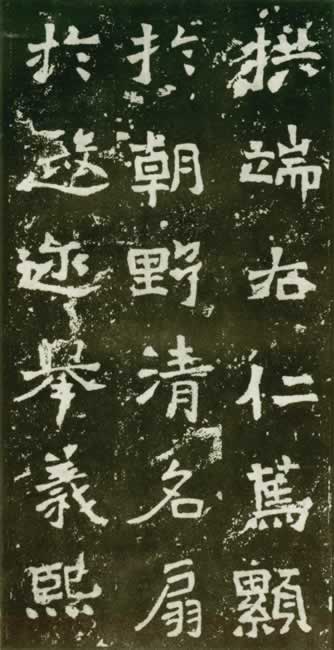 拱端右仁篤顯
於朝野清名扇
於遐迩舉義熙